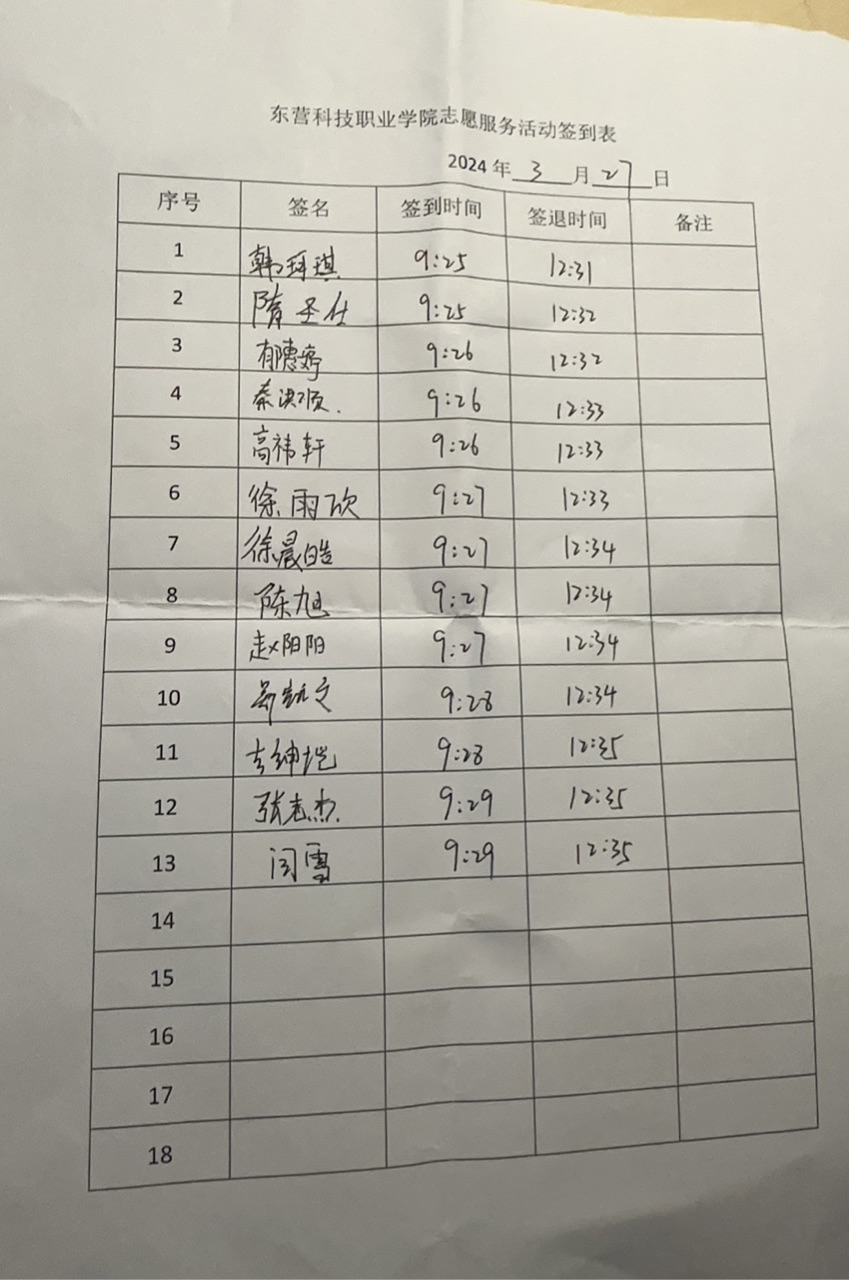 东营科技职业学院志愿服务活动签到表
2024 年 3 月 27 日
序号 签名 签到时间 签退时间 备注
1 韩珂琪 9:25 12:31
2 隋圣仕 9:25 12:32
3 郁惠婷 9:26 12:32
4 秦洪顺. 9:26 12:33
5 高祎轩 9:26 12:33
6 徐雨欣 9:27 12:33
7 徐晨皓 9:27 12:34
8 陈旭 9:27 12:34
9 赵阳阳 9:27 12:34
10 9:28 12:34
11 9:28 12:35
12 张志杰. 9:29 12:35
13 闫雪 9:29 12:35
14
15
16
17
18